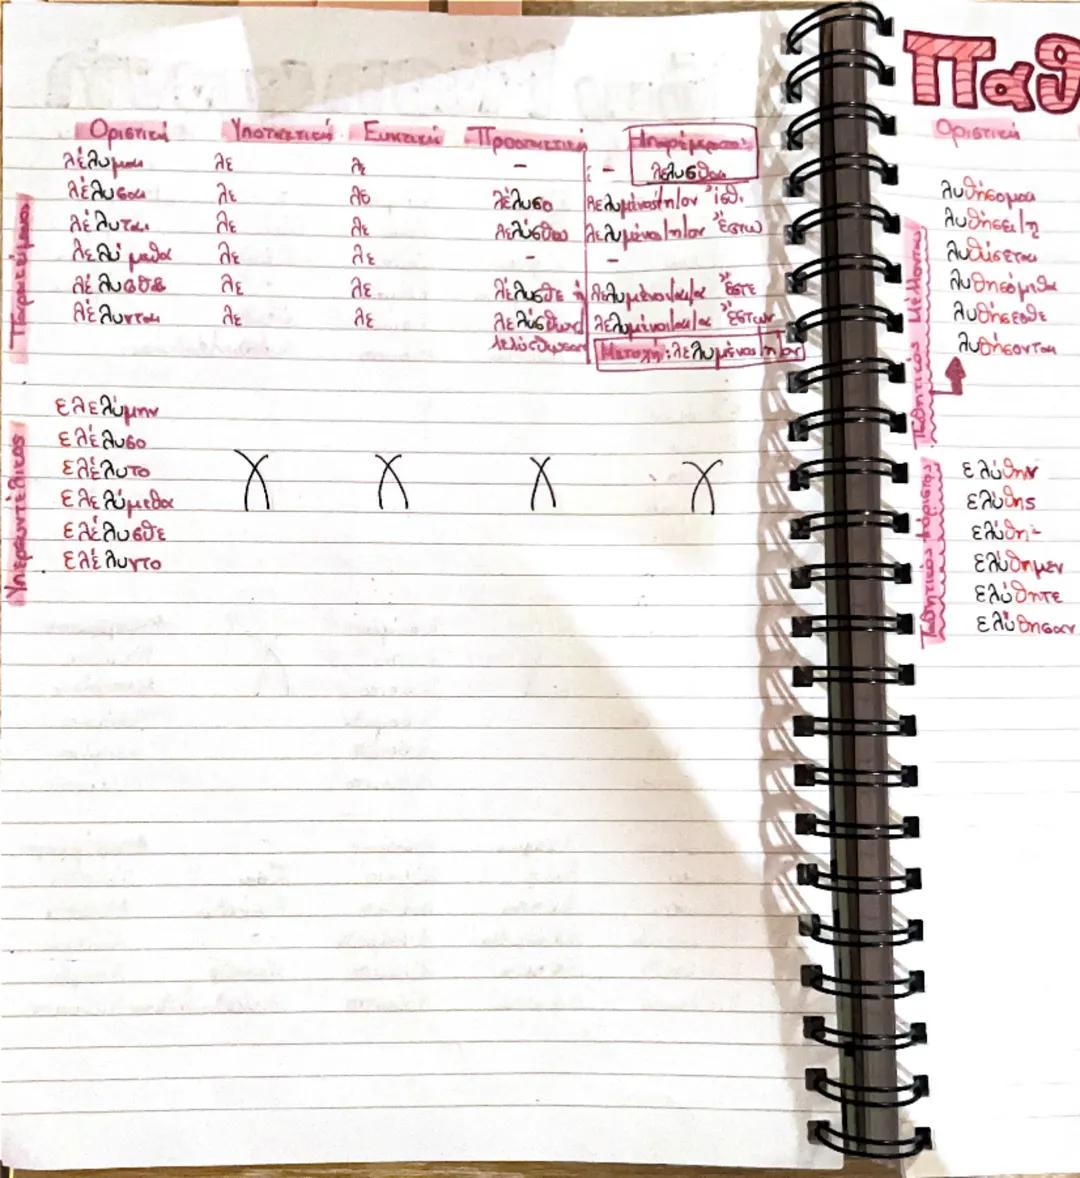 Οριστική Υποτακτική Ευκτική Προστακτική Απαρέμφατο:
λέλυμαι λε λε - : - λελυσθαι
λέλυσαι λε λε λέλυσο λελυμένος/η/ον ἴσθι
λέλυται λε λε λελύσθω λελυμένος/η/ον ἔστω
λελύμεθα λε λε - -
λέλυσθε λε λε λέλυσθε ή λελυμένοι/αι/α ἔστε
λέλυνται λε λε λελύσθων λελυμένοι/αι/α ἔστων
λελύσθωσαν Μετοχή: λελυμένος/η/ον
Παρακείμενος
ελελύμην
ελέλυσο
ελέλυτο
ελελύμεθα
ελέλυσθε
ελέλυντο
Υπερσυντέλικος
Παθ
Οριστική
λυθήσομαι
λυθήσει/η
λυθήσεται
λυθησόμεθα
λυθήσεσθε
λυθήσονται
Παθητικός Μέλλοντας
ελύθην
ελύθης
ελύθη
ελύθημεν
ελύθητε
ελύθησαν
Παθητικός Αόριστος